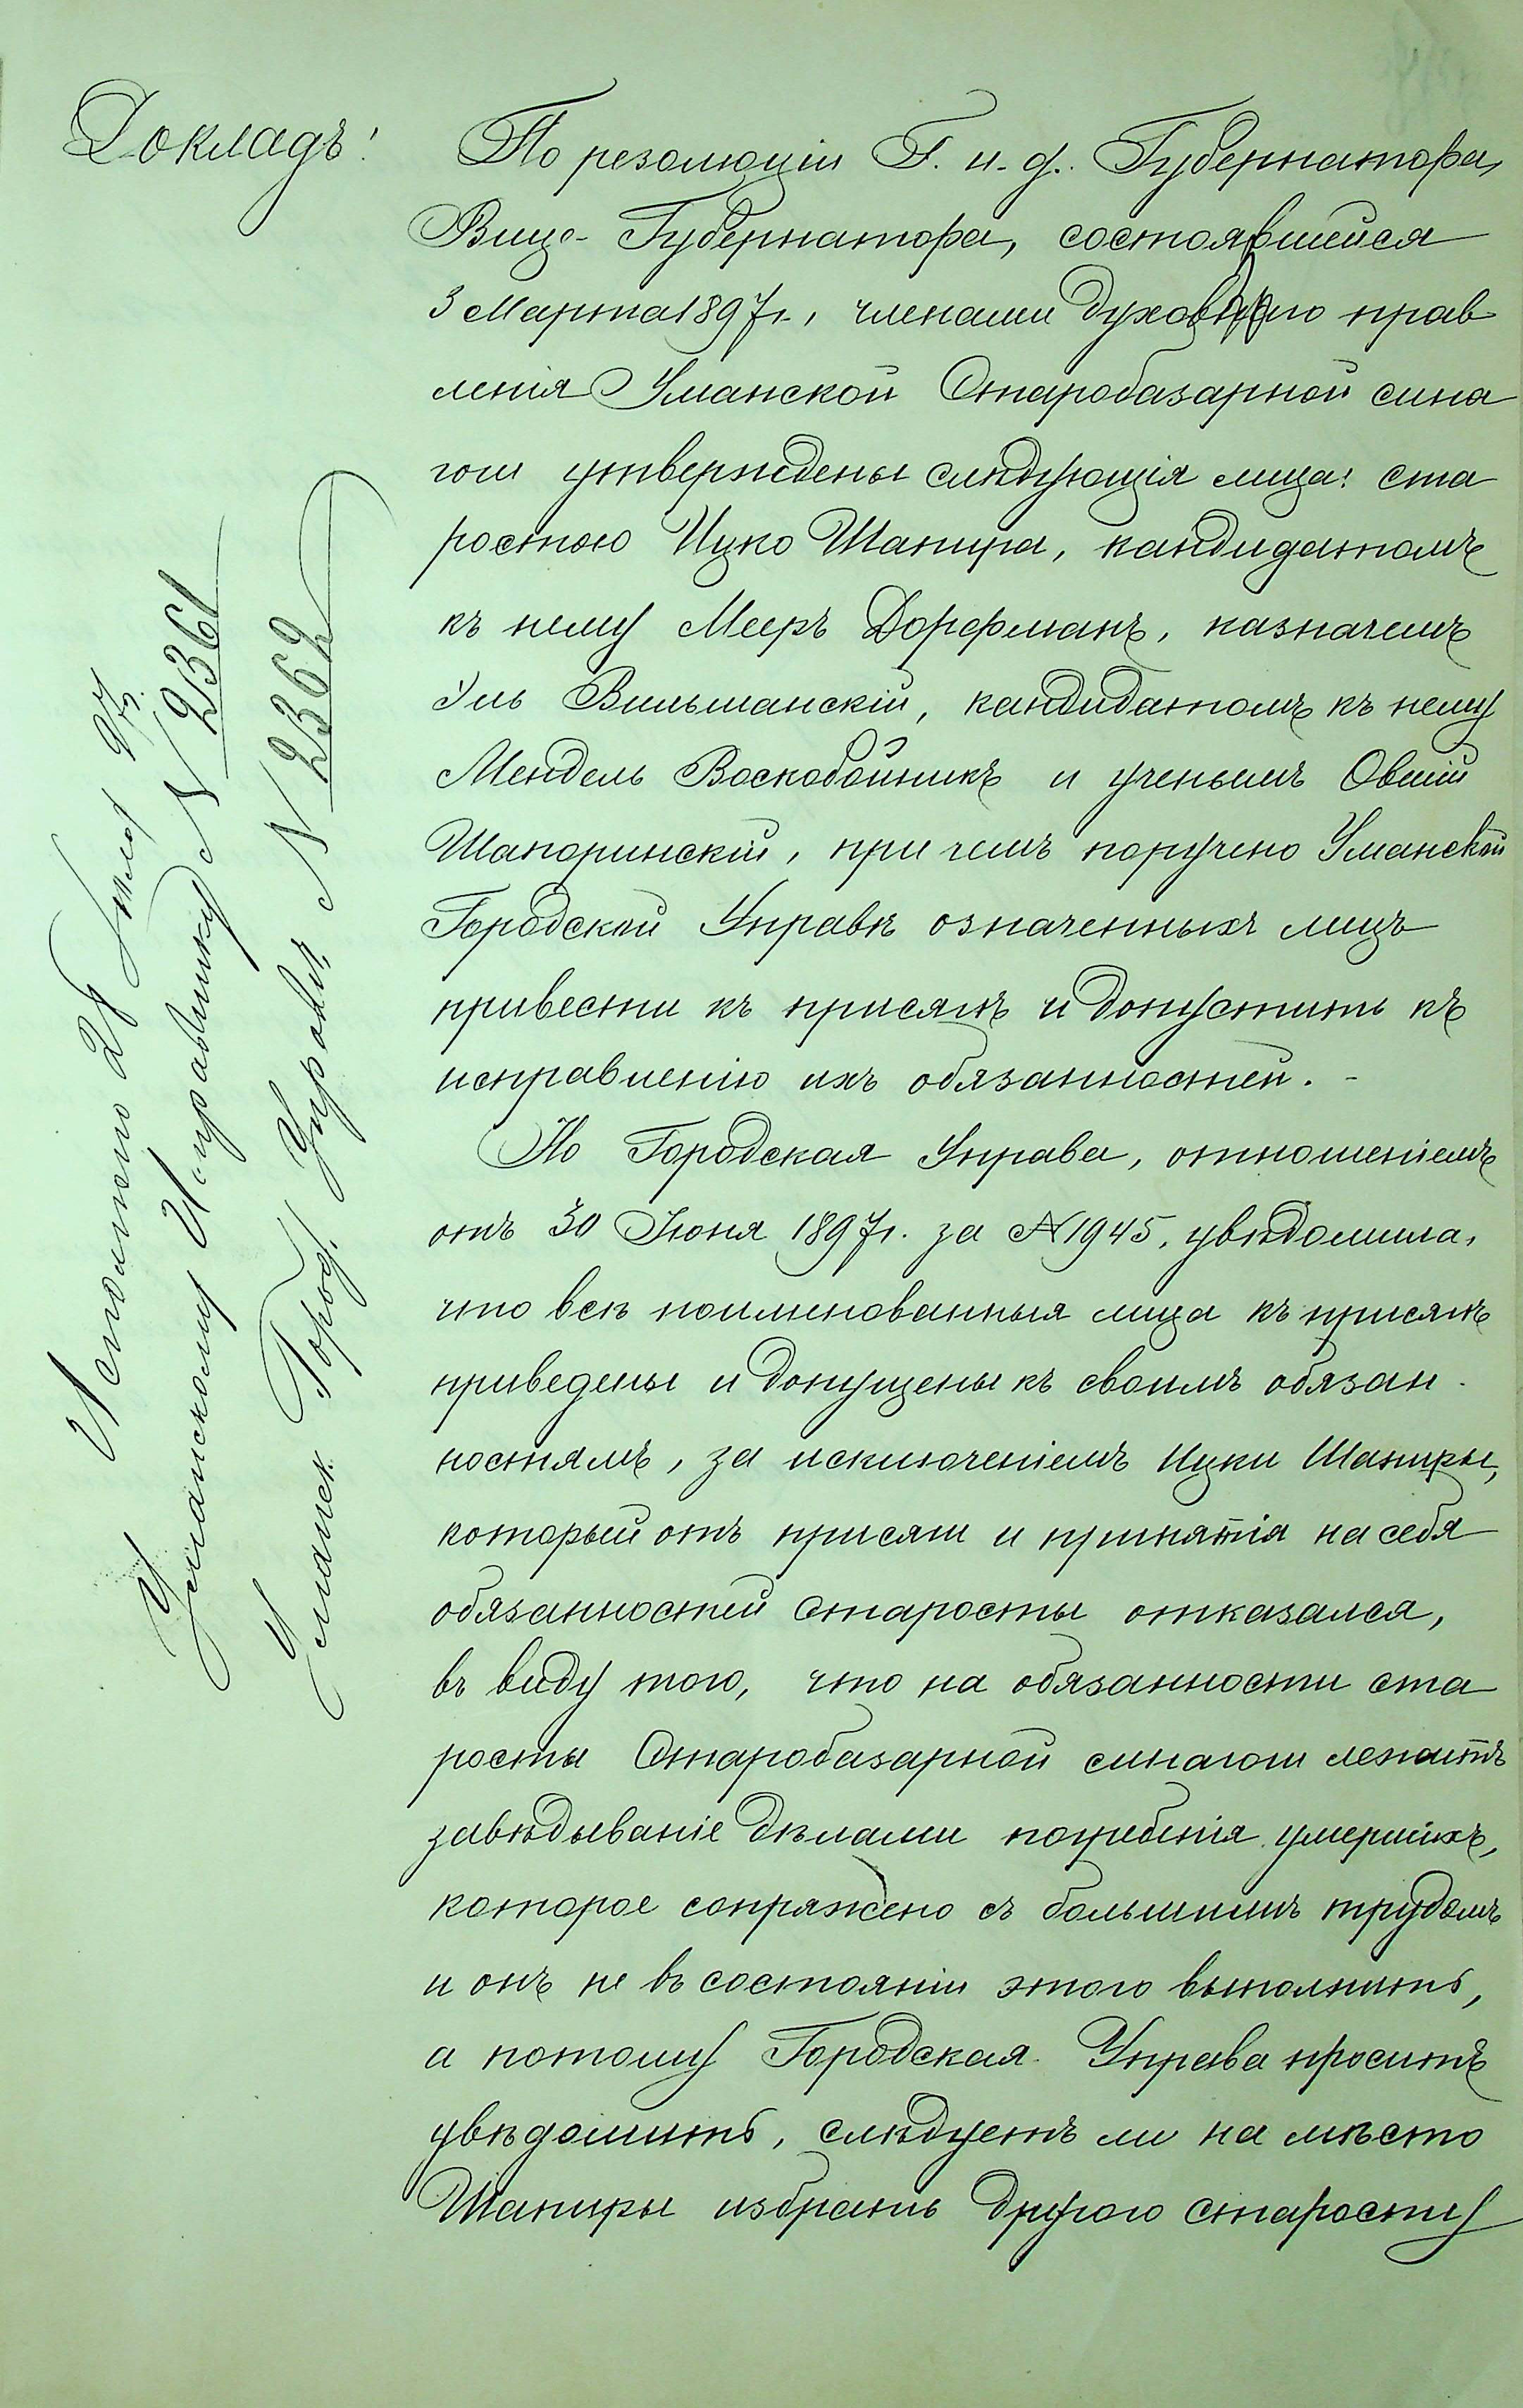 Докладъ:
По резолюціи Г. и. д. Губернатора,
Вице-Губернатора, состоявшейся
3 Марта 1897 г., членами духовнаго прав
ленія Уманской Старобазарной сина
гоги утверждены слѣдующія лица: ста
ростою Ицко Шапира, кандидатомъ
къ нему Мееръ Дорфманъ, казначеемъ
Іуль Вильшанскій, кандидатомъ къ нему
Мендель Воскобойникъ и ученымъ Овшій
Шапоринскій, при чемъ поручено Уманской
Городской Управѣ означенныхъ лицъ
привести къ присягѣ и допустить къ
исправленію ихъ обязанностей. -
Но Городская Управа, отношеніемъ
отъ 30 Іюня 1897 г. за № 1945, увѣдомила,
что всѣ поименованныя лица къ присягѣ
приведены и допущены къ своимъ обязан-
ностямъ, за исключеніемъ Ицки Шапиры,
который отъ присяги и принятія на себя
обязанностей старосты отказался,
въ виду того, что на обязанности ста
росты Старобазарной синагоги лежитъ
завѣдываніе дѣлами погребенія умершихъ,
которое сопряжено съ большимъ трудомъ
и онъ не въ состояніи этого выполнить,
а потому Городская Управа проситъ
увѣдомить, слѣдуетъ ли на мѣсто
Шапиры избрать другого старосту
Исполнено 21 Іюля 97 г.
Уманскому Исправнику N 2361
Уманск. Город. Управѣ N 2362